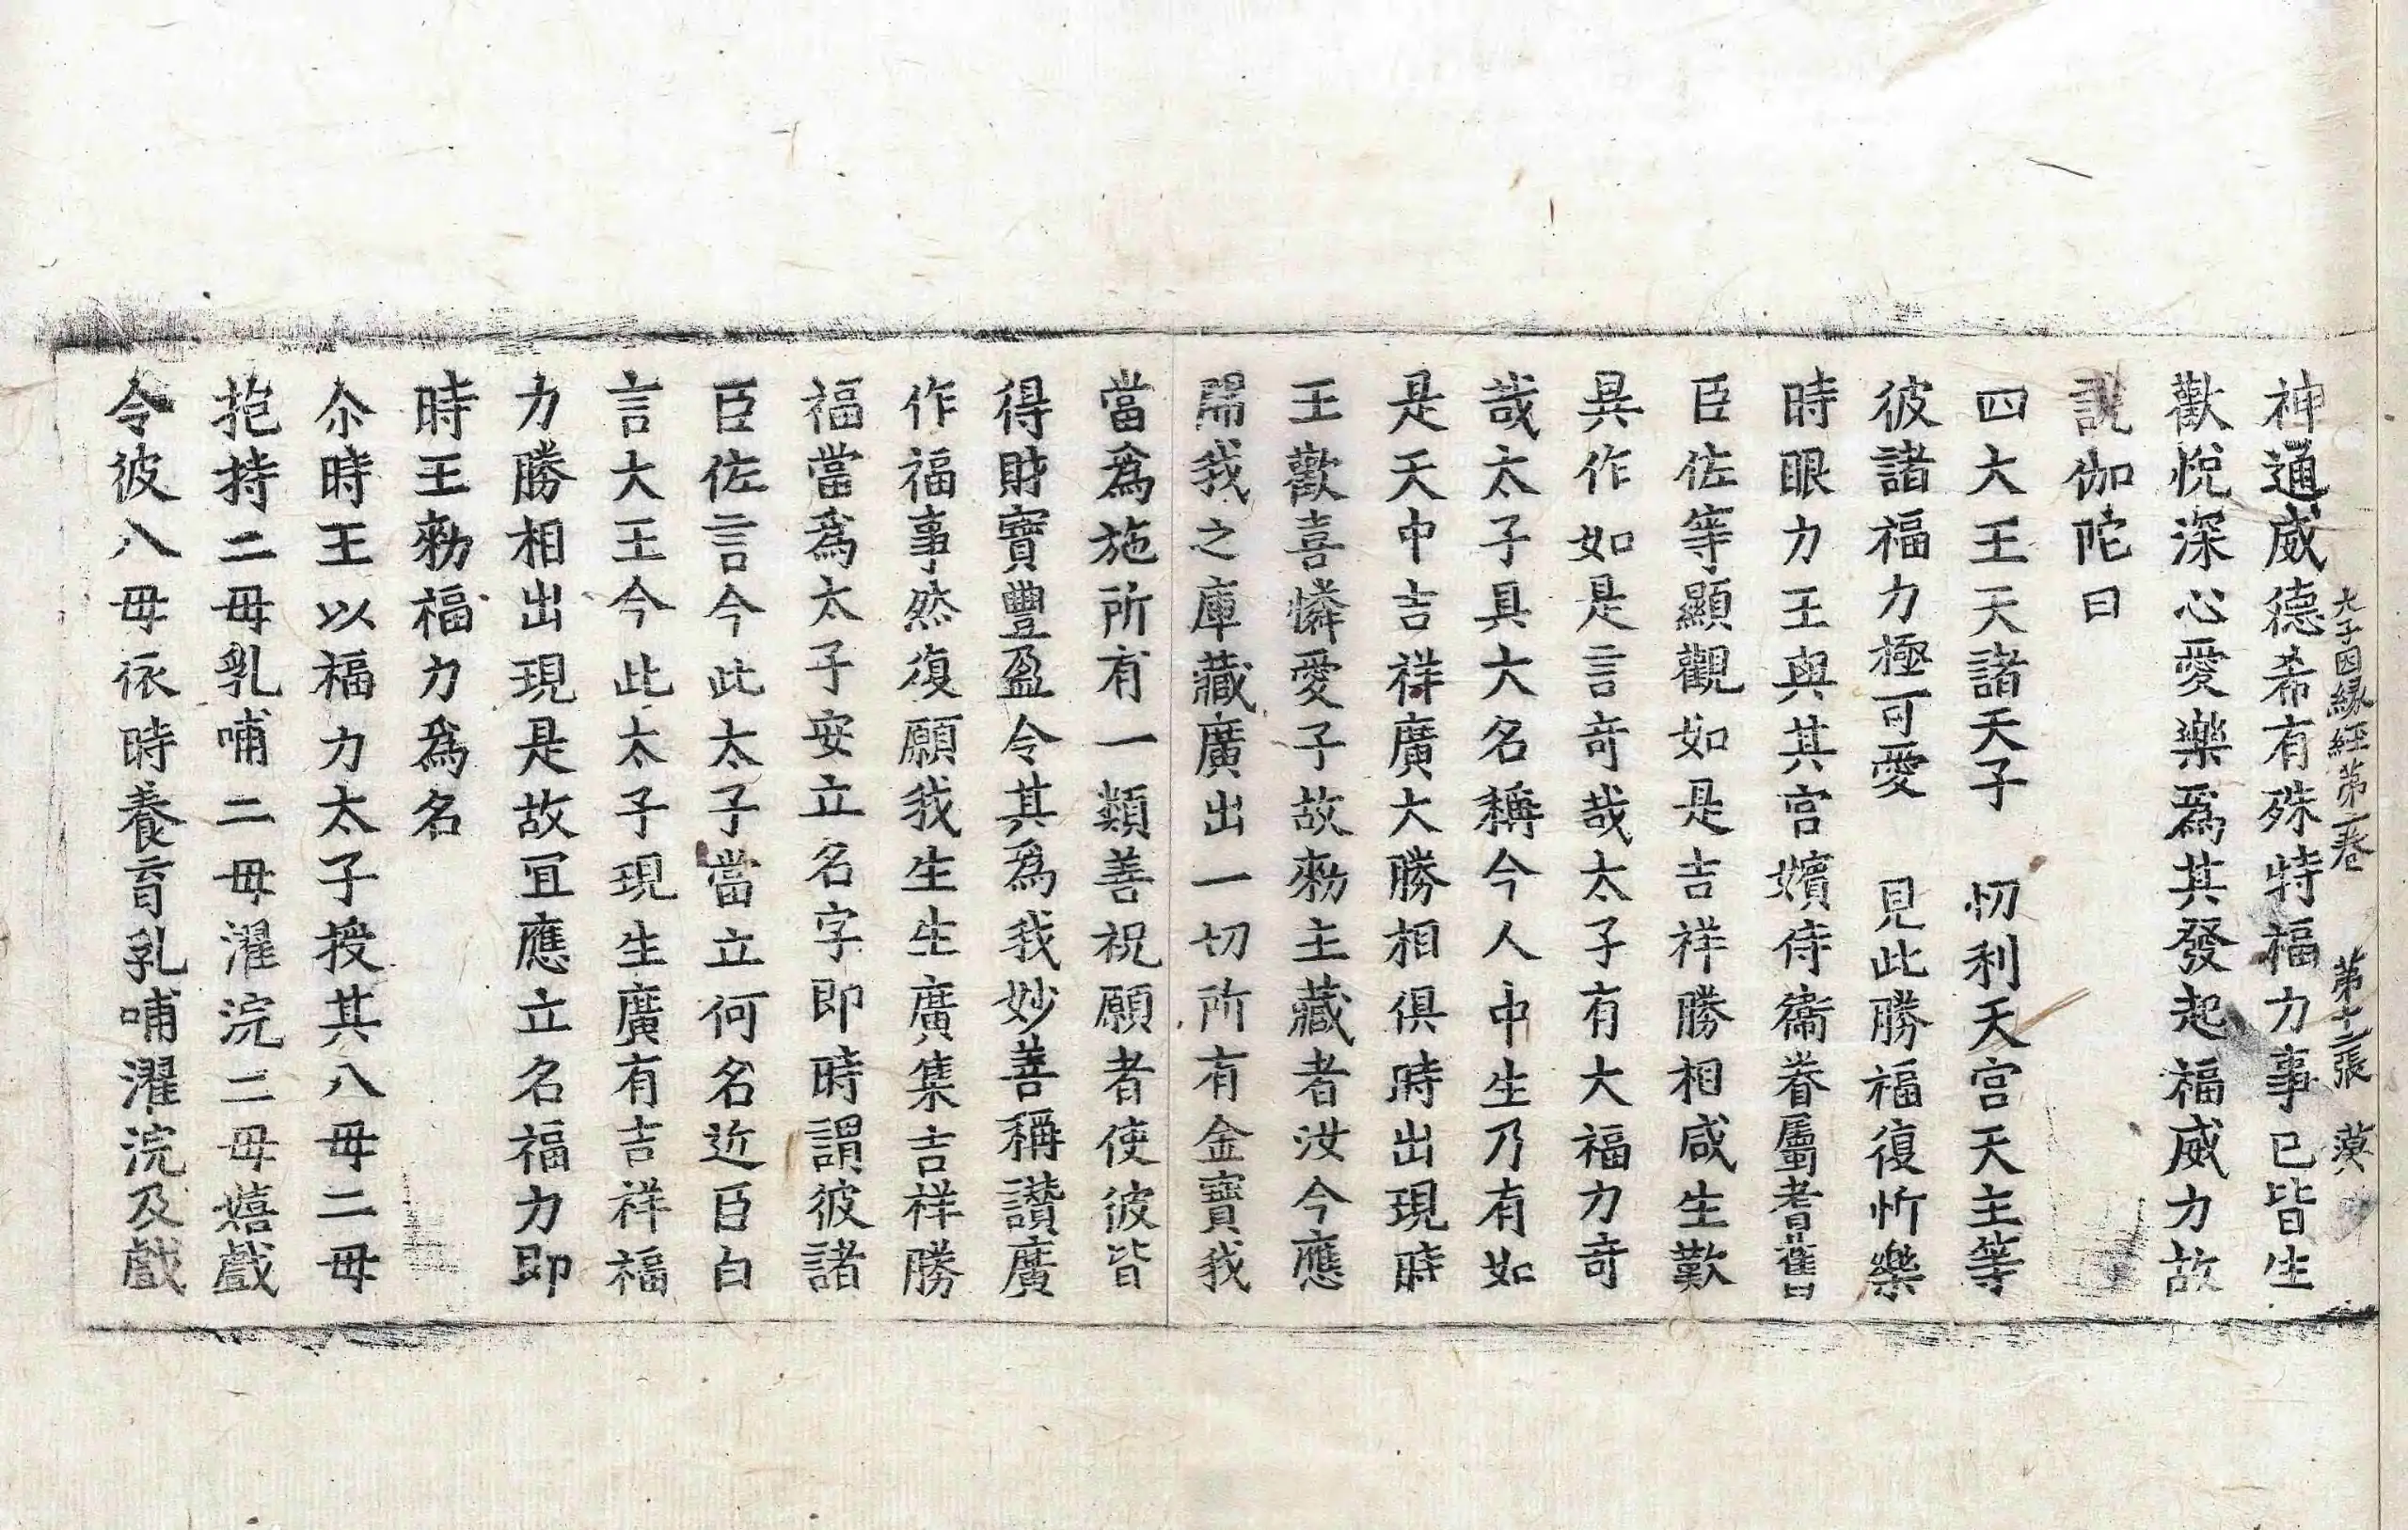 太子因緣經第二卷 第十二張 漠
神通威德希有殊特福力事已皆生
歡悅深心愛樂爲其發起福威力故
說伽陀曰
四大王天諸天子 忉利天宮天主等
彼諸福力極可愛 見此勝福復忻樂
時眼力王與其宮嬪侍衞眷屬耆舊
臣佐等顯觀如是吉祥勝相咸生歎
異作如是言奇哉太子有大福力奇
哉太子具大名稱今人中生乃有如
是天中吉祥廣大勝相俱時出現時
王歡喜憐愛子故勑主藏者汝今應
開我之庫藏廣出一切所有金寶我
當爲施所有一類善祝願者使彼皆
得財寶豐盈令其爲我妙善稱讚廣
作福事然復願我生生廣集吉祥勝
福當爲太子安立名字即時謂彼諸
臣佐言今此太子當立何名近臣白
言大王今此太子現生廣有吉祥福
力勝相出現是故冝應立名福力即
時王勑福力爲名
尒時王以福力太子授其八母二母
抱持二母乳哺二母濯浣二母嬉戲
令彼八母依時養育乳哺濯浣及戲